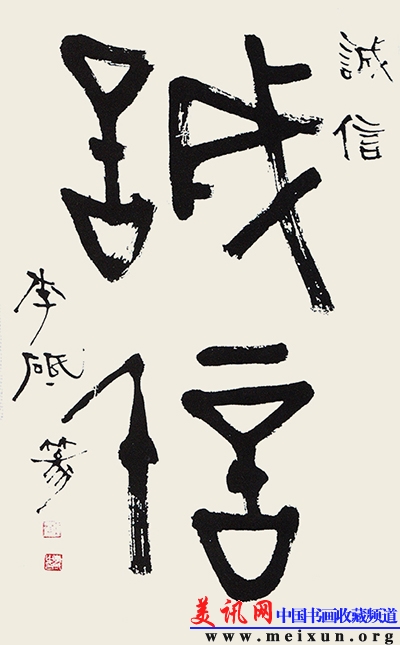 誠信
誠信
李砥篆
美讯网 中国书画收藏频道
www.meixun.org